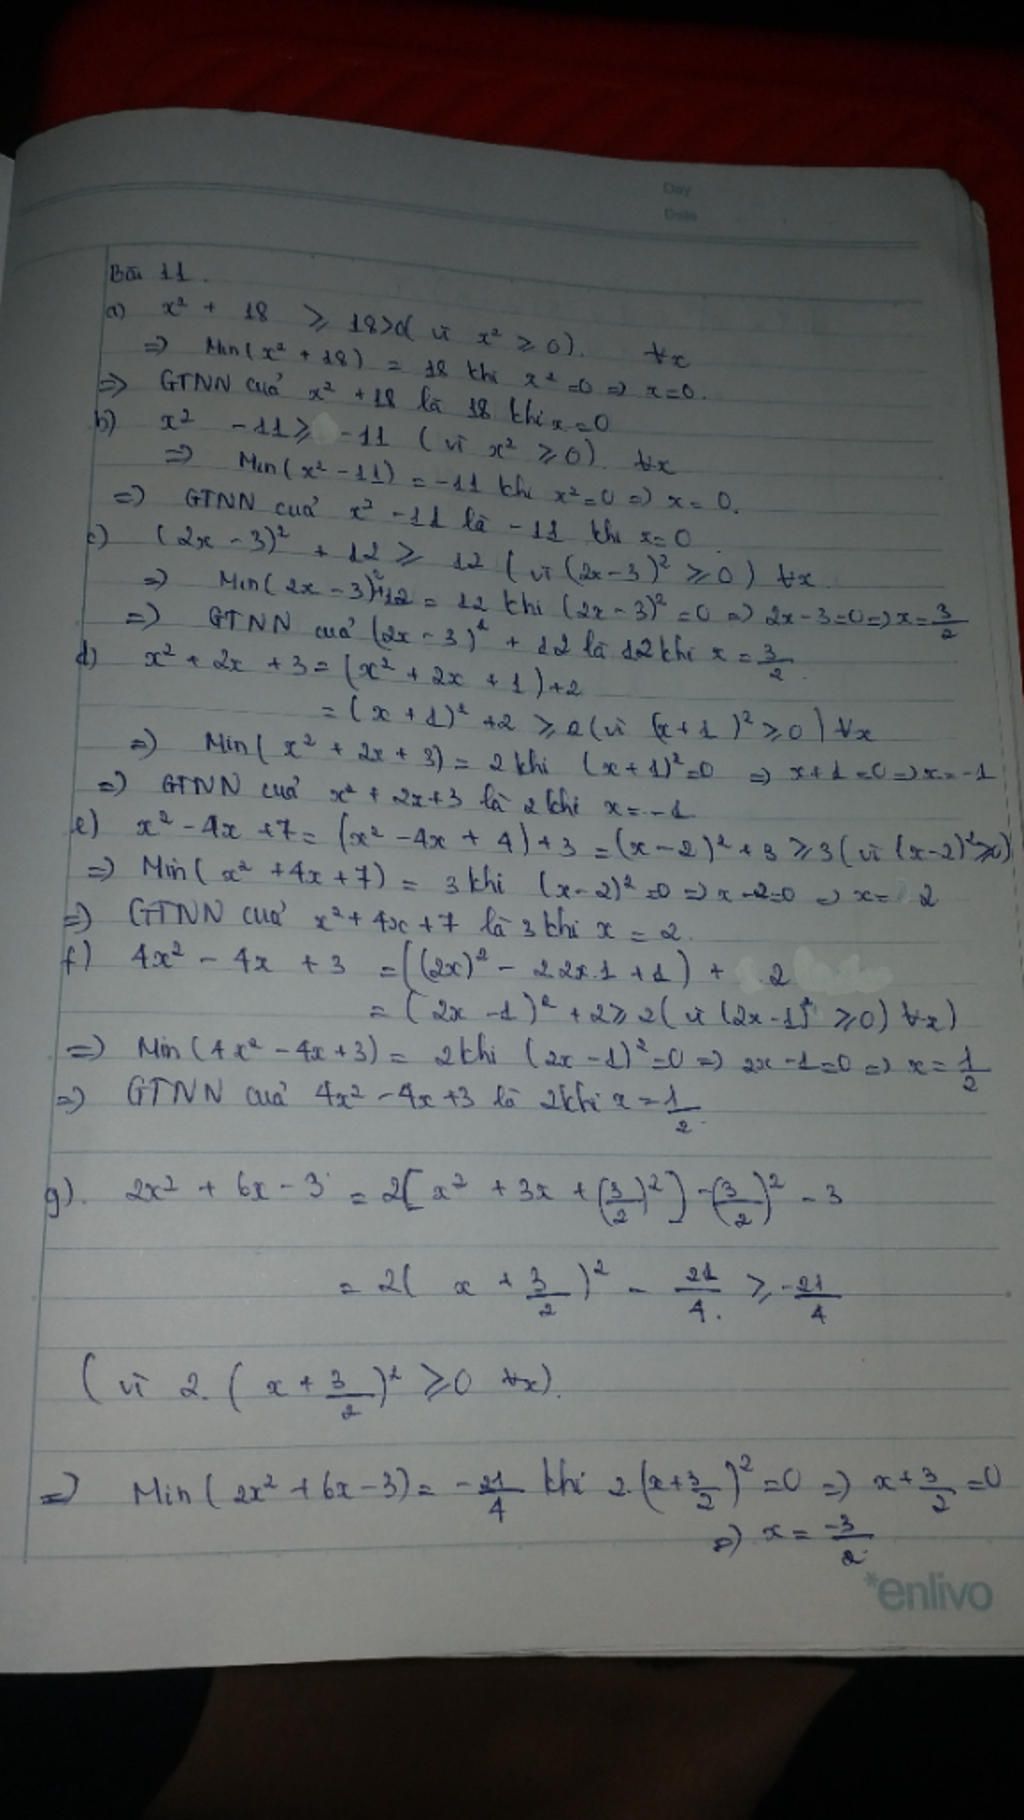 Day
Date
Bài 11.
a) x² + 18 ≥ 18>0( vì x² ≥ 0). ∀x
=> Min(x² + 18) = 18 khi x² =0 => x=0.
=> GTNN cuả x² +18 là 18 khi x=0
b) x² -11≥ -11 ( vì x² ≥0) ∀x
=> Min(x² -11) = -11 khi x²=0 => x= 0.
=> GTNN cuả x² -11 là -11 khi x=0
c) (2x -3)² + 12 ≥ 12 ( vì (2x-3)² ≥0 ) ∀x
=> Min(2x -3)²+12 = 12 khi (2x -3)² =0 => 2x-3=0=> x= 3/2
=> GTNN cuả (2x -3)² + 12 là 12 khi x = 3/2.
d) x² + 2x +3 = (x² + 2x +1)+2
= (x +1)² +2 ≥ 2 ( vì (x+1)² ≥0 ) ∀x
=> Min( x² + 2x + 3) = 2 khi (x +1)²=0 => x+1=0=> x=-1
=> GTNN cuả x² + 2x+3 là 2 khi x=-1
e) x² -4x +7= (x² -4x + 4)+3 =(x -2)² +3 ≥3 ( vì (x-2)²≥0)
=> Min( x² +4x +7) = 3 khi (x-2)² =0 => x -2=0 => x= 2
=> GTNN cuả x² + 4x +7 là 3 khi x = 2.
f) 4x² - 4x +3 =((2x)² - 2.2x.1 +1) + 2
= (2x -1)² +2≥ 2( vì (2x-1)² ≥0) ∀x)
=> Min (4x² -4x+3) = 2 khi (2x -1)²=0 => 2x -1=0 => x= 1/2
=> GTNN cuả 4x² -4x+3 là 2 khi x = 1/2.
g). 2x² + 6x -3 = 2[ x² + 3x + (3/2)²] -(3/2)² - 3
= 2( x + 3/2 )² - 21/4. ≥ -21/4
( vì 2.( x + 3/2 )² ≥0 ∀x).
=> Min ( 2x² +6x -3) = -21/4 khi 2.(x+3/2)² =0 => x+3/2 =0
=> x= -3/2.
*enlivo